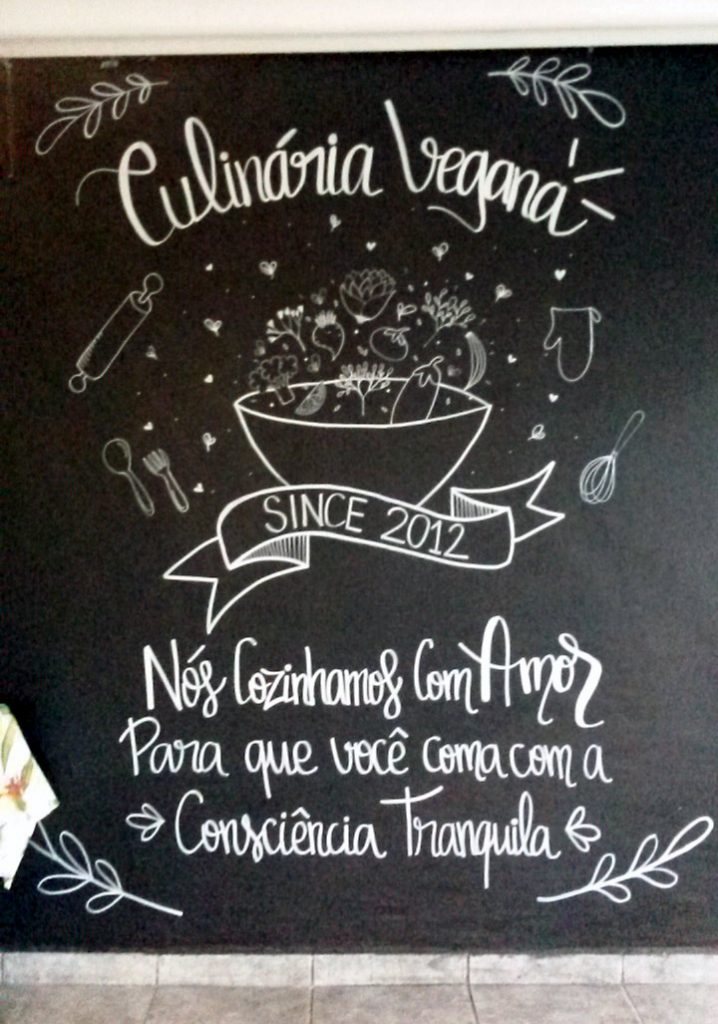 Culinária Vegana
SINCE 2012
Nós Cozinhamos Com Amor
Para que você coma com a
Consciência Tranquila